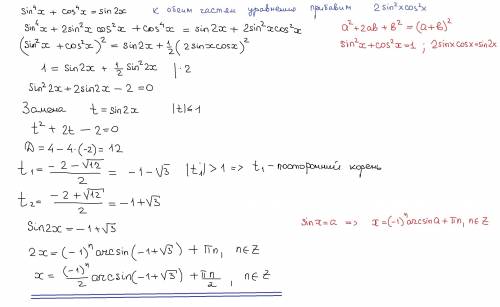 sin⁴x + cos⁴x = sin2x к обеим частям уравнения прибавим 2sin²xcos²x
sin⁴x + 2sin²x cos²x + cos⁴x = sin2x + 2sin²xcos²x a² + 2ab + b² = (a+b)²
(sin²x + cos²x)² = sin2x + ½(2sinxcosx)² sin²x + cos²x = 1 ; 2sinxcosx = sin2x
1 = sin2x + ½ sin²2x | · 2
sin²2x + 2sin2x − 2 = 0
Замена t = sin2x |t| ≤ 1
t² + 2t − 2 = 0
D = 4 − 4·(−2) = 12
t₁ = (−2 − √12)/2 = −1 − √3 |t₁| > 1 => t₁ − посторонний корень
t₂ = (−2 + √12)/2 = −1 + √3
sin2x = −1 + √3 sinx = a => x = (−1)ⁿ arcsin a + πn, n∈Z
2x = (−1)ⁿ arcsin(−1 + √3) + πn, n∈Z
x = (−1)ⁿ/2 arcsin(−1 + √3) + πn/2, n∈Z